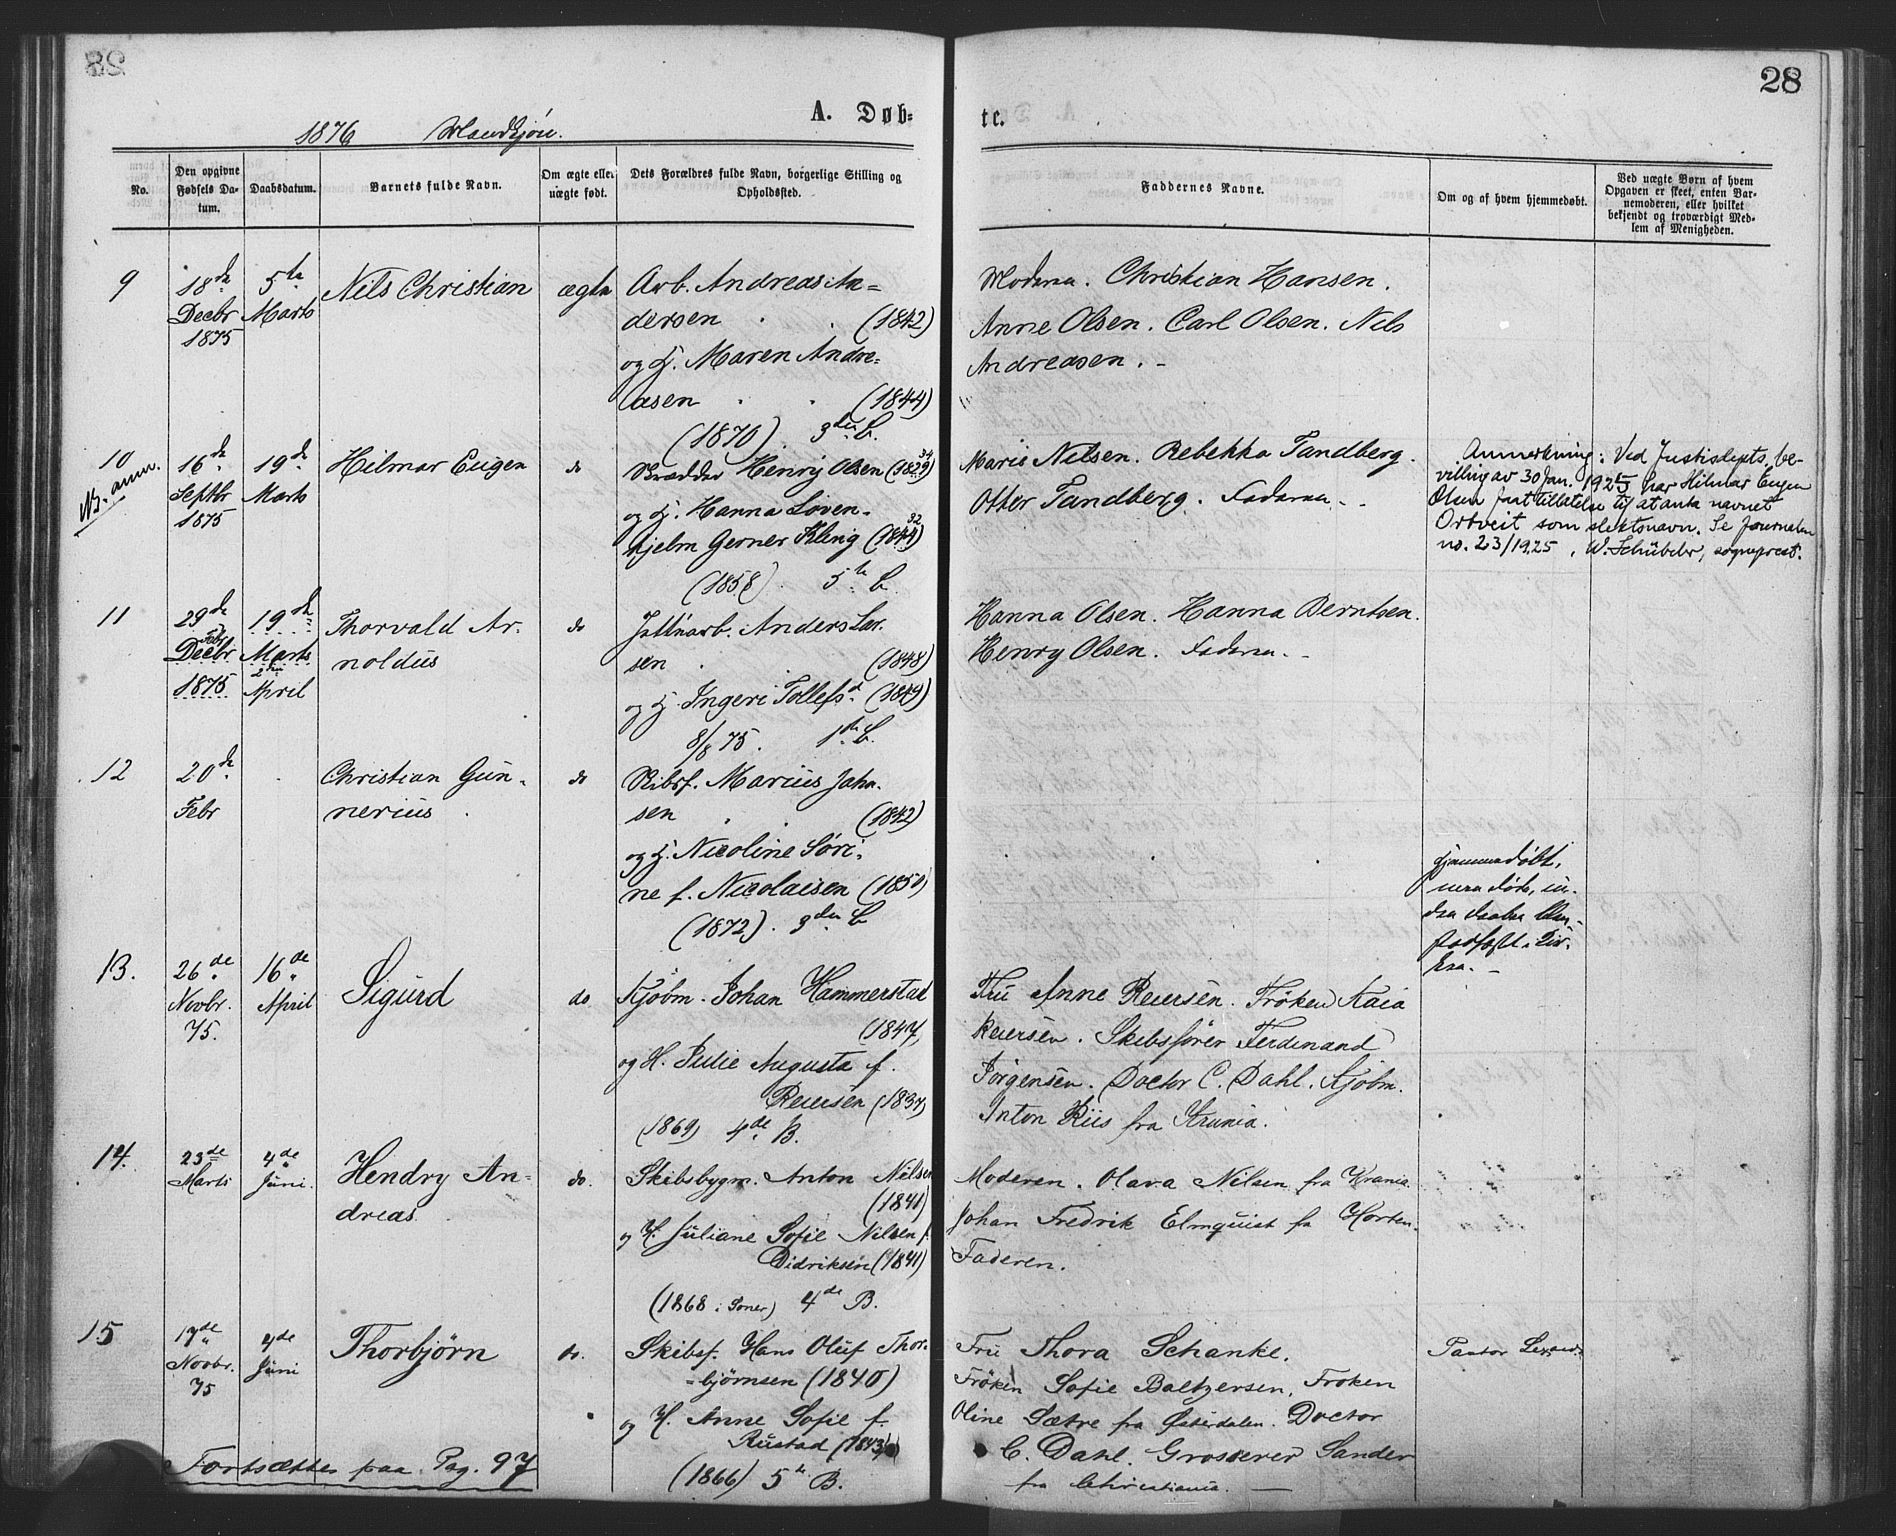 28
A. Døb=
te.
1876 Mandkjön.
No.
Den opgivne Fødsels Da-tum.
Daabsdatum.
Barnets fulde Navn.
Om ægte eller uægte født.
Dets Forældres fulde Navn, borgerlige Stilling og Opholdsted.
Faddernes Navne.
Om og af hvem hjemmedøbt.
Ved uægte Børn af hvem Opgaven er skeet, enten Bar-nemoderen, eller hvilket bekjendt og troværdigt Med-lem af Menigheden.
9
18de Decbr 1875
5te Marts
Nils Christian
ægte
Arb. Andreas An=
dersen (1842)
og H. Maren Andre=
asen (1844)
(1870). 3die B.
Moderen. Christian Hansen.
Anne Olsen. Carl Olsen. Nils
Andreasen. -
10
NB. anm.
16de Septbr 1875
19de Marts
Hilmar Eugen
do
Skrædder Henry Olsen (1829) 34
og H. Hanna Löven-
hjelm Gerner Kling (1844) 32
(1858). 5te B.
Marie Nilsen. Rebekka Tandberg.
Otter Tandberg. Faderen - -
Anmerkning: Ved Justisdepts. be-
villing av 30 Jan. 1925 har Hilmar Eugen
Olsen fått tillatelse til at anta navnet
Ortveit som slektsnavn. Se journalen
no. 23/1925, W. Schübeler, sogneprest.
11
29de Febr Decbr 1875
19de Marts 2den April
Thorvald Ar-
noldus
do
Anders Lar-
sen (1848)
og H. Ingeri Tollefsd. (1849)
8/8 75. 1ste B.
Hanna Olsen. Hanna Berntsen.
Henry Olsen. Faderen. -
12
20de Febr
Christian Gun-
nerius
do
Skibsf. Marius Joha-
sen (1842)
og H. Nicoline Söri-
ne f. Nicolaisen (1850)
(1872). 3die B
hjemmedöbt,
men døde, in-
den Daaben blev
stadfæst i Kir-
ken. -
13.
26de Novbr. 75.
16de April
Sigurd
do
Kjöbm. Johan Hammerstad
(1847)
og H. Julie Augusta f.
Reiersen (1837)
(1869) 4de B.
Fru Anne Reiersen. Fröken Kaia
Reiersen. Skibsförer Ferdinand
Jörgensen. Doctor C. Dahl. Kjöbm.
Anton Riis fra Krania.
14.
23de Marts
4de Juni.
Hendry An-
dreas
do.
Skibsbygm. Anton Nilsen
(1841)
og H. Juliane Sofie Nilsen f.
Didriksen (1841)
(1868 i Soner) 4de B.
Moderen. Olava Nilsen fra Krania.
Johan Fredrik Elmquist fra Horten.
Faderen.
15
17de Novbr. 75
4de Juni
Thorbjörn
do.
Skibsf. Hans Oluf Thor-
=bjørnsen (1840)
og H. Anne Sofie f.
Rustad (1843)
(1866) 5te B.
Fru Thora Schanke.
Fröken Sofie Baltzersen, Froken
Oline Sætre fra Østerdalen. Doctor
C. Dahl. Grosserer Sander
fra Christiania. -
Pastor
Fortsættes paa Pag. 97